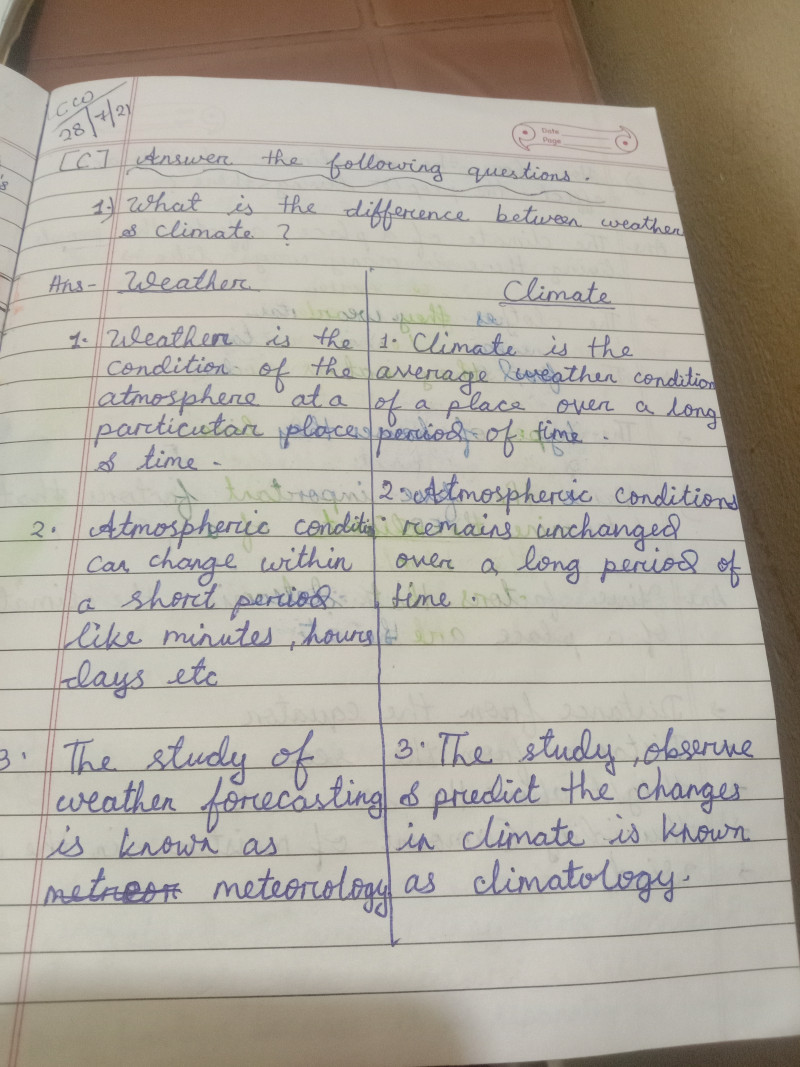 C.W
28/7/21
Date
Page
[C] Answer the following questions.
1) What is the difference between weather
& climate ?
Ans- Weather
1. Weather is the
condition of the
atmosphere at a
particular place
& time.
2. Atmospheric conditio
can change within
a short period
like minutes, hours
days etc
3. The study of
weather forecasting
is known as
meteorology
Climate
1. Climate is the
average weather condition
of a place over a long
period of time.
2. Atmospheric conditions
remains unchanged
over a long period of
time.
3. The study, observe
& predict the changes
in climate is known
as climatology.